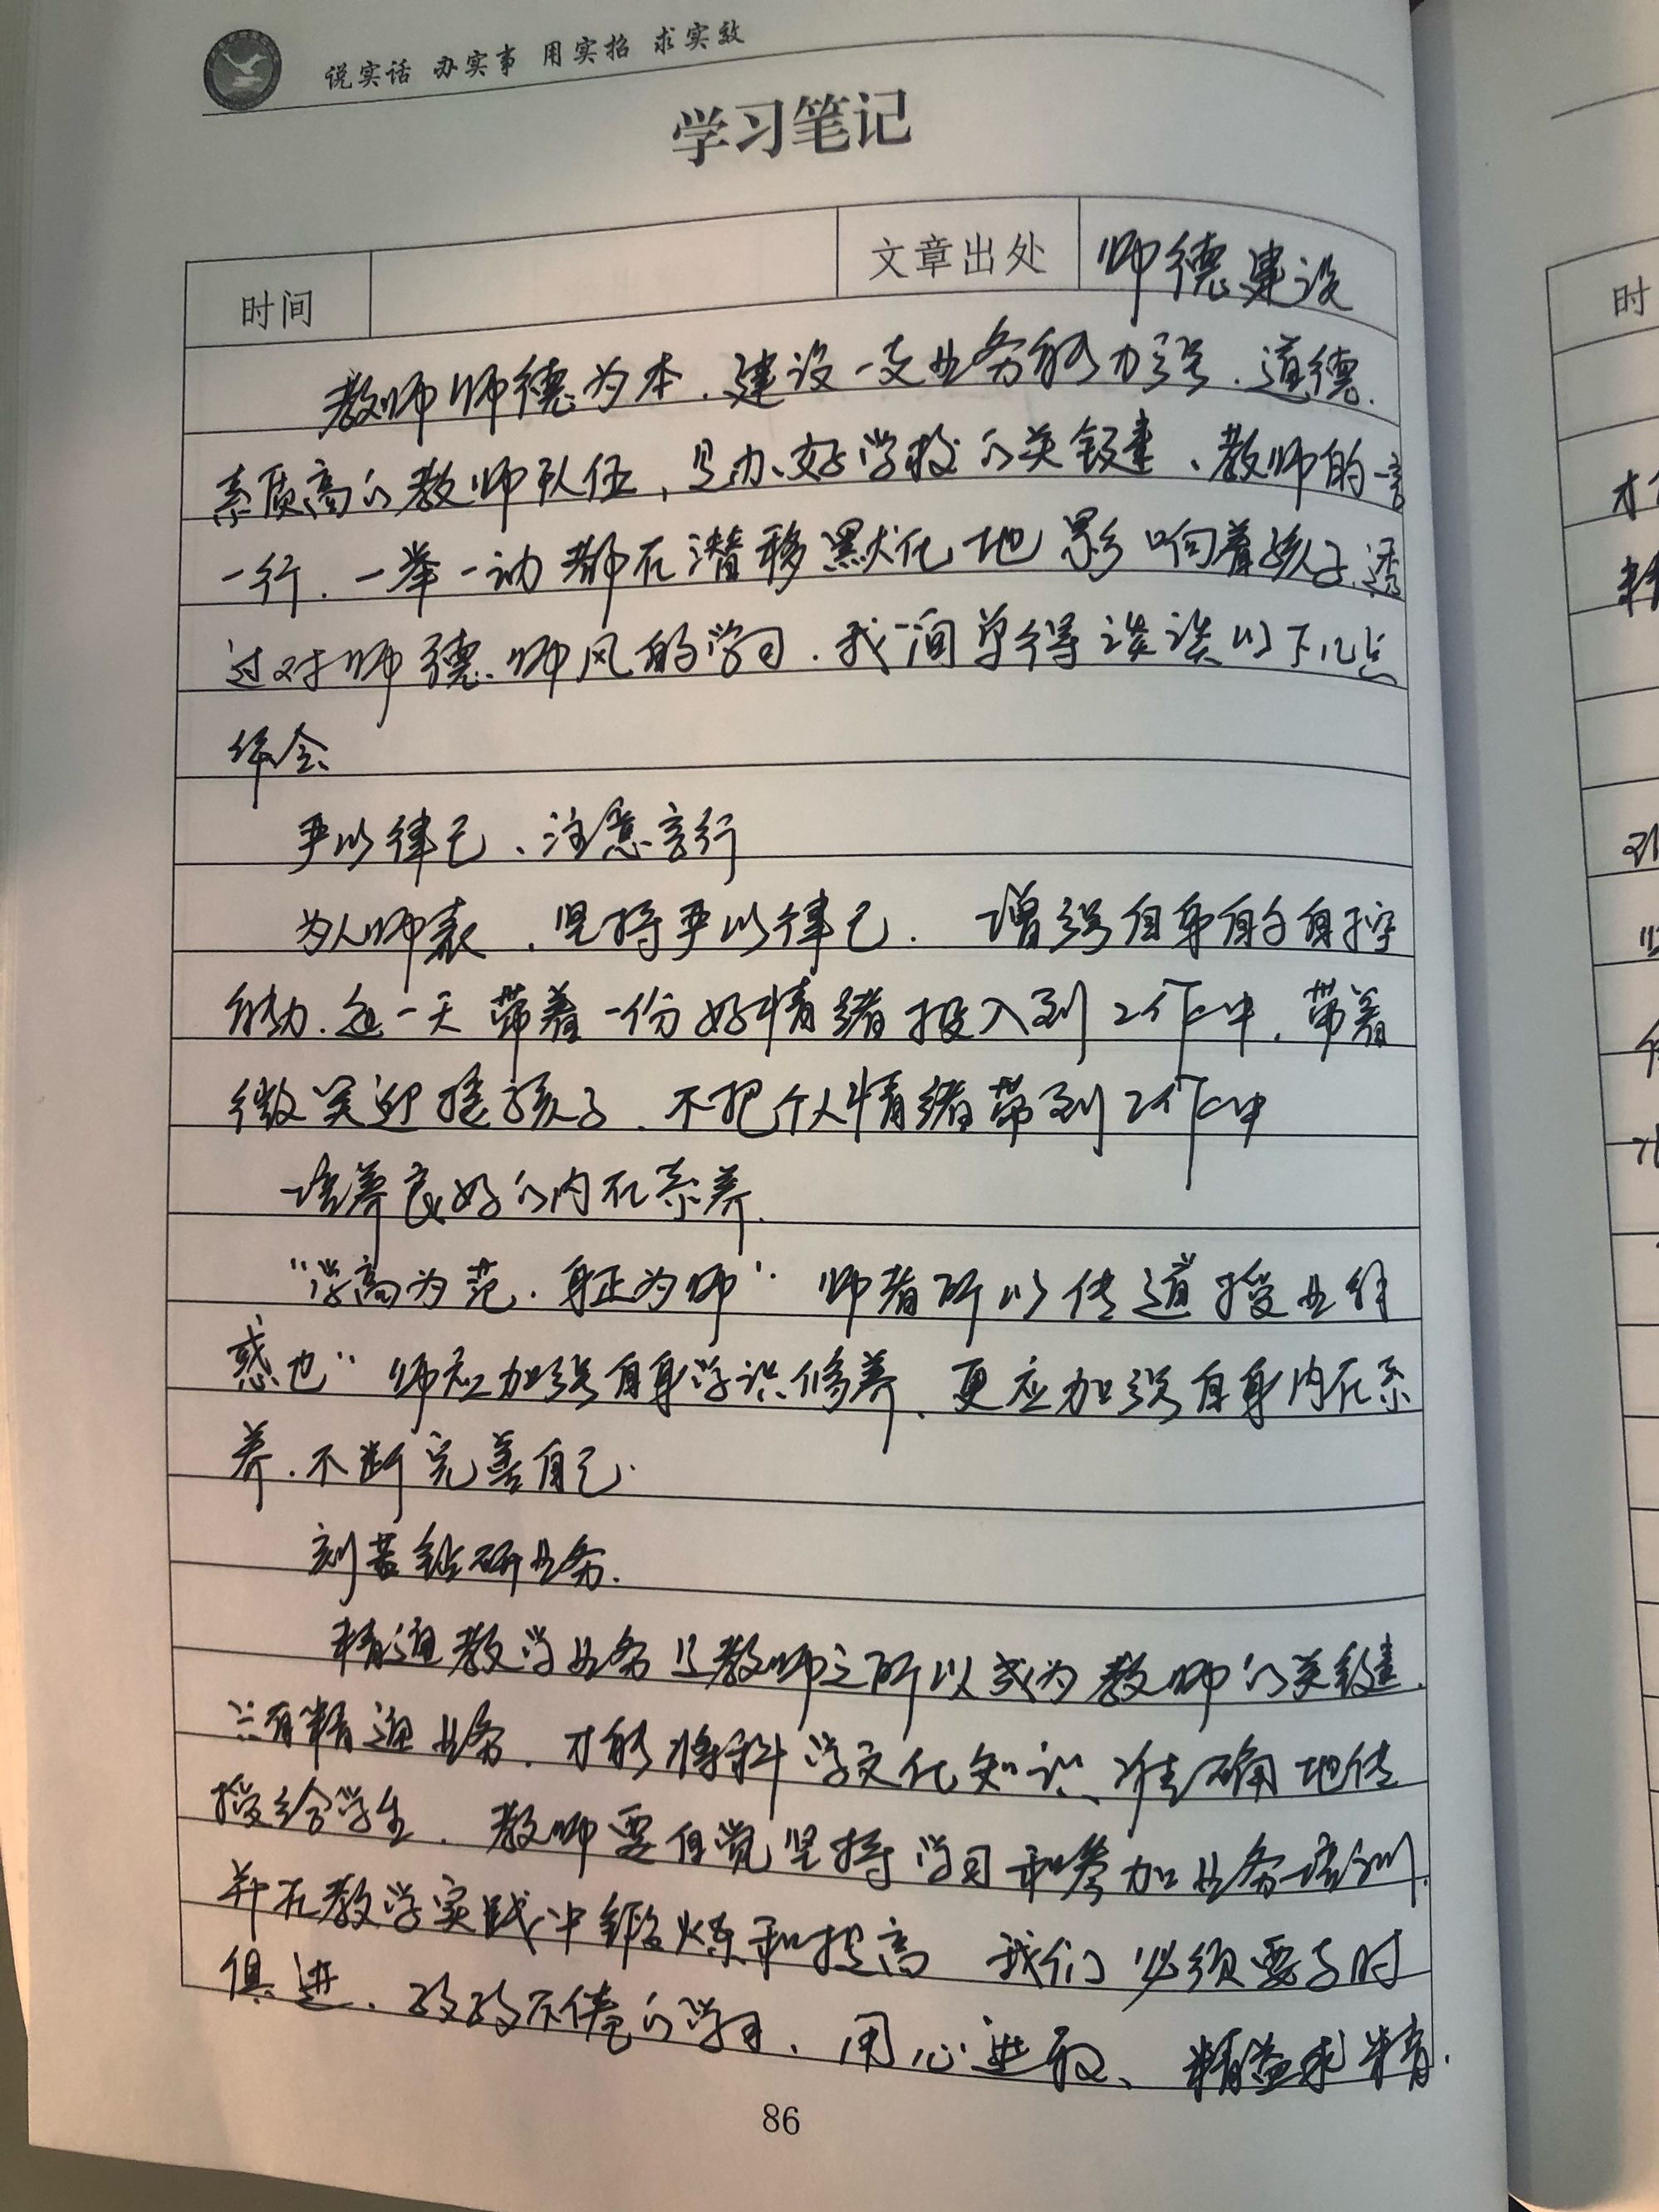 说实话 办实事 用实招 求实效
学习笔记
时间 文章出处 师德建设
教师师德为本.建设一支业务能力强.道德.
素质高的教师队伍,是办好学校的关键、教师的一言
一行.一举一动都在潜移默化地影响着孩子.透
过对师德.师风的学习.我简单得谈谈以下几点
体会
严以律己、注意言行
为人师表.坚持严以律己.增强自身的自控
能力.每一天带着一份好情绪投入到工作中.带着
微笑迎接孩子.不把个人情绪带到工作中
培养良好的内在素养.
“学高为范.身正为师”.师者所以传道授业解
惑也”师应加强自身学识修养、更应加强自身内在素
养.不断完善自己.
刻苦钻研业务.
精通教学业务是教师之所以成为教师的关键.
只有精通业务.才能将科学文化知识准确地传
授给学生.教师要自觉坚持学习和参加业务培训.
并在教学实践中锻炼和提高 我们必须要与时
俱进.孜孜不倦的学习.用心进取、精益求精.
86
时